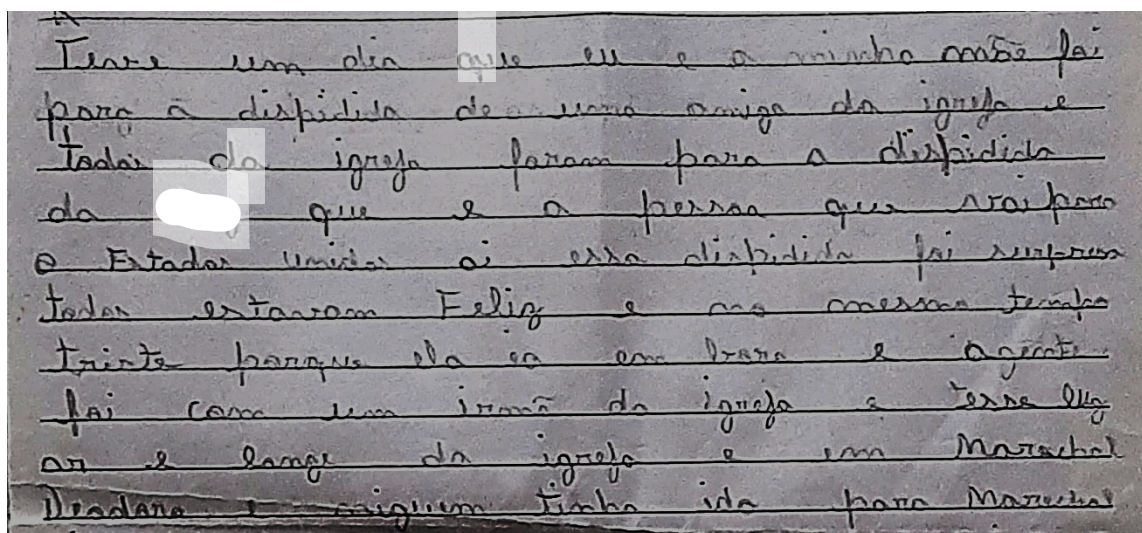 Teve um dia que eu e a minha mãe foi
para a dispidida de uma amiga da igreja e
todos da igreja foram para a dispidida
da que e a pessoa que vai para
o Estados unidos ai essa dispidida foi surpresa
todos estavam Feliz e no mesmo tempo
triste porque ela ia em bora e agente
foi com um irmã da igreja e esse lug
ar e longe da igreja e em Marechal
Deodoro e niguem tinha ido para Marechal